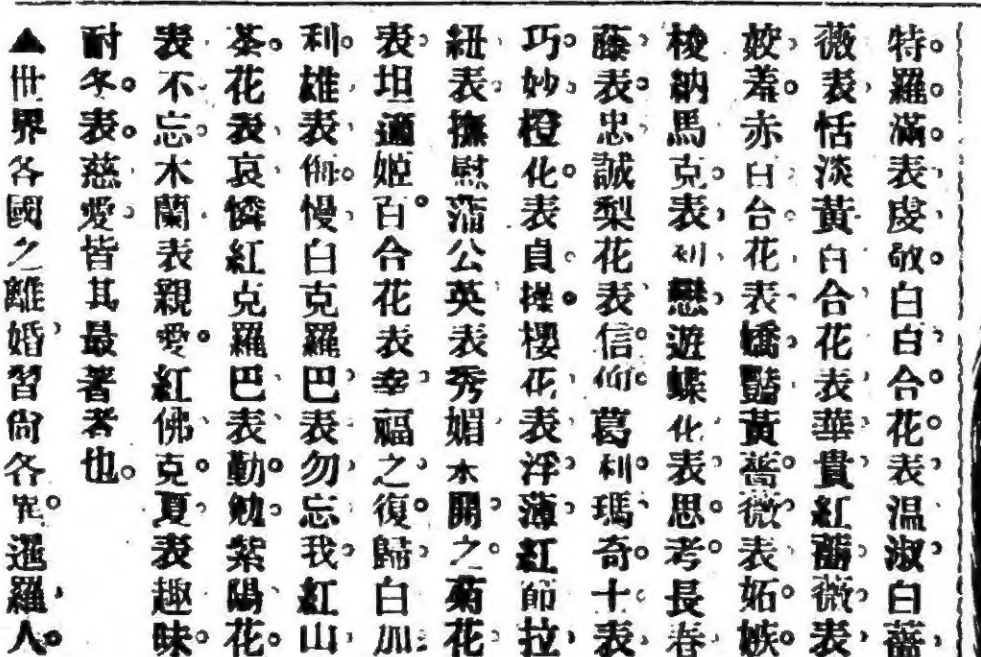 特羅滿表虔敬白白合花表温淑白薔
薇表恬淡黃白合花表華貴紅薔薇表
姣羞赤白台花表嬌豔黃薔薇表妬嫉
梭納馬克表利懸遊蝶化表思考長春
藤表忠誠梨花表信仰葛利瑪奇十表
巧妙橙化表貞操櫻花表浮薄紅節拉
紐表撫慰蒲公英表秀媚未開之菊花
表坦適姬百合花表幸福之復歸白加
利雄表侮慢白克羅巴表勿忘我紅山
茶花表哀憐紅克羅巴表勤勉紫陽花
表不忘木蘭表親愛紅佛克夏表趣味
耐冬表慈愛皆其最著者也
▲世界各國之離婚習尙各異暹羅人